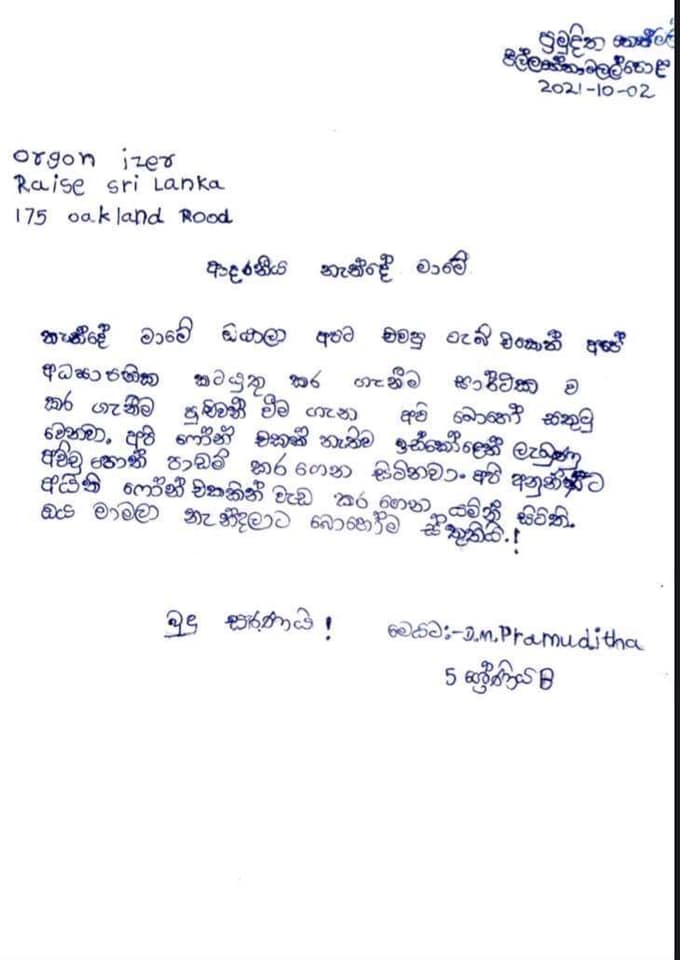 ප්‍රමුදිත
2021-10-02
orgon izer
Raise sri Lanka
175 oakland Rood
ආදරනීය නැන්දේ මාමේ
නැන්දේ මාමේ ඔයාලා අපට එවපු ටැබ් එකෙන් අපේ
අධ්‍යාපනික කටයුතු කර ගැනීම සාර්ථක ව
කර ගැනීම පුළුවන් වීම ගැන අපි බොහෝ සතුටු
වෙනවා. අපි ෆෝන් එකක් නැතිව ඉස්කෝලෙන් ලැබුණු
අච්චු පොත් පාඩම් කර ගෙන සිටිනවා. අපි
අයිති ෆෝන් එකකින් වැඩ කර ගෙන යමින් සිටි.
ඔය මාමලා නැන්දලාට බොහෝම ස්තූතියි.!
බුදු සරණයි!
මෙයට:-D.M.Pramuditha
5 ශ්‍රේණිය B